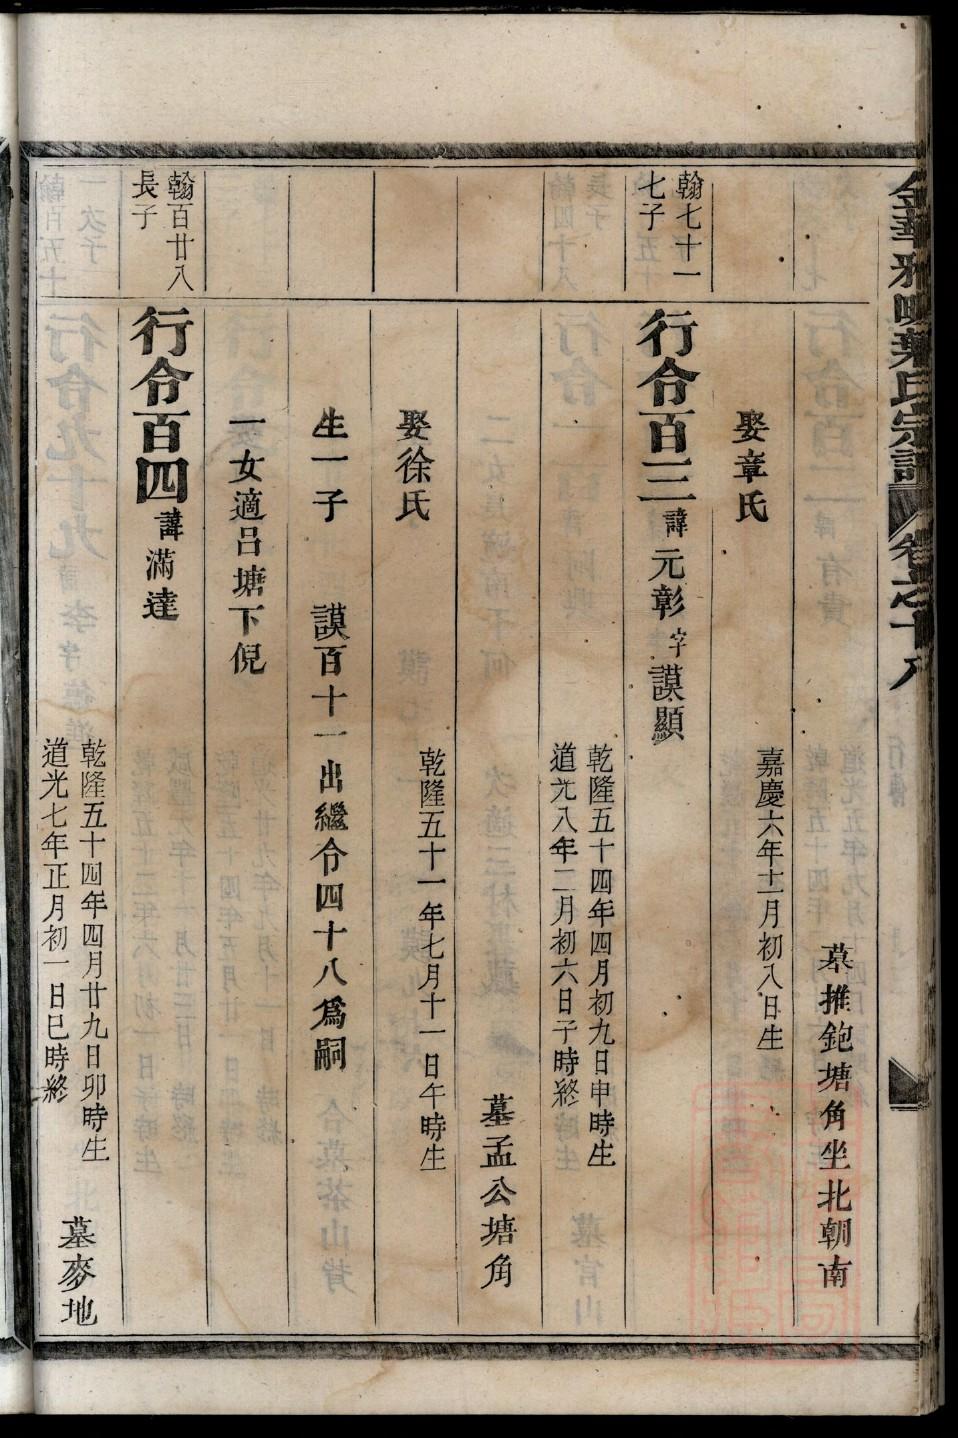 墓推鉋塘角坐北朝南
娶章氏
嘉慶六年十二月初八日生
翰七十一
七子
行令百三諱元彰字謨顯
乾隆五十四年四月初九日申時生
道光八年二月初六日子時終
墓孟公塘角
娶徐氏
乾隆五十一年七月十一日午時生
生一子
謨百十一出繼令四十八爲嗣
一女適呂塘下倪
翰百廿八
長子
行令百四諱滿達
乾隆五十四年四月廿九日卯時生
道光七年正月初一日巳時終
墓麥地